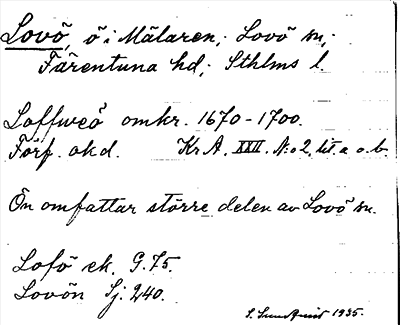 Lovö, ö i Mälaren; Lovö sn;
Färentuna hd; Sthlms l
Loffweö omkr. 1670-1700.
Förf. okd. Kr A. XXII. N:o 2, lit. a o. b.
Ön omfattar större delen av Lovö sn.
Lofö ek. G. 75.
Lovön Sj. 240.
S. 1935.